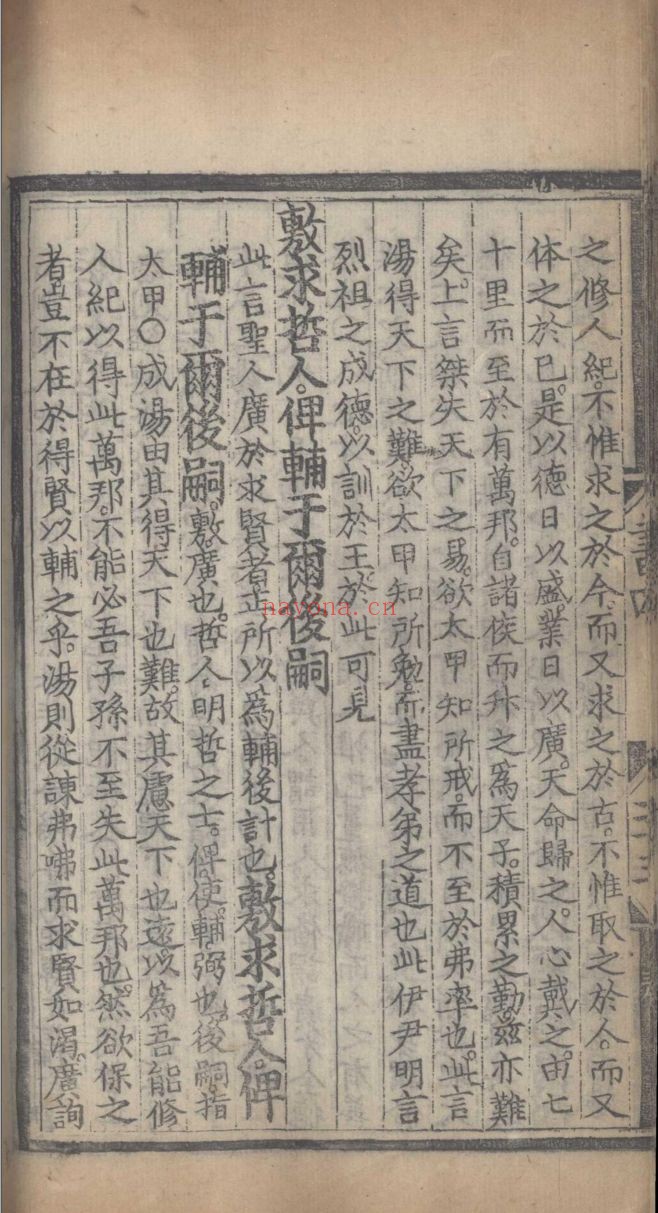 之修人紀。不惟求之於今。而又求之於古。不惟取之於人。而又
体之於已。是以德日以盛。業日以廣。天命歸之。人心戴之。由七
十里而至於有萬邦。自諸侯而升之爲天子。積累之勤。兹亦難
矣。上言桀失天下之易。欲太甲知所戒。而不至於弗率也。此言
湯得天下之難。欲太甲知所勉。而盡孝弟之道也此伊尹明言
烈祖之成德。以訓於王。於此可見
敷求哲人。俾輔于爾後嗣
此言聖人廣於求賢者。正所以爲輔後計也。敷求哲人。俾
輔于爾後嗣。敷廣也。哲人。明哲之士。俾。使。輔弼也。後嗣指
太甲〇成湯由其得天下也難。故其慮天下也遠。以爲吾能修
人紀以得此萬邦。不能必吾子孫不至失此萬邦也。然欲保之
者豈不在於得賢以輔之乎。湯則從諫弗咈而求賢如渴。廣詢
書四
三十三
hayona.cn